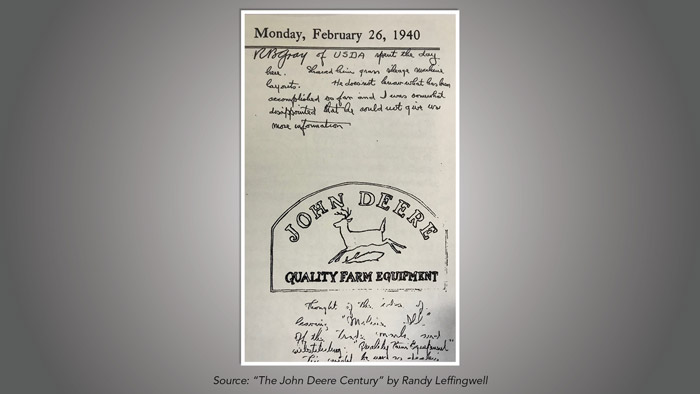 Monday, February 26, 1940
R B Gray of USDA spent the day
here. Showed him grass silage machine
layouts. He does not know what has been
accomplished so far and I was somewhat
disappointed that he could not give us
more information
JOHN DEERE
QUALITY FARM EQUIPMENT
Thought of the idea of
leaving "Moline Ill"
Off the trade mark and
substituting "Quality Farm Equipment"
This could be used on
Source: “The John Deere Century” by Randy Leffingwell